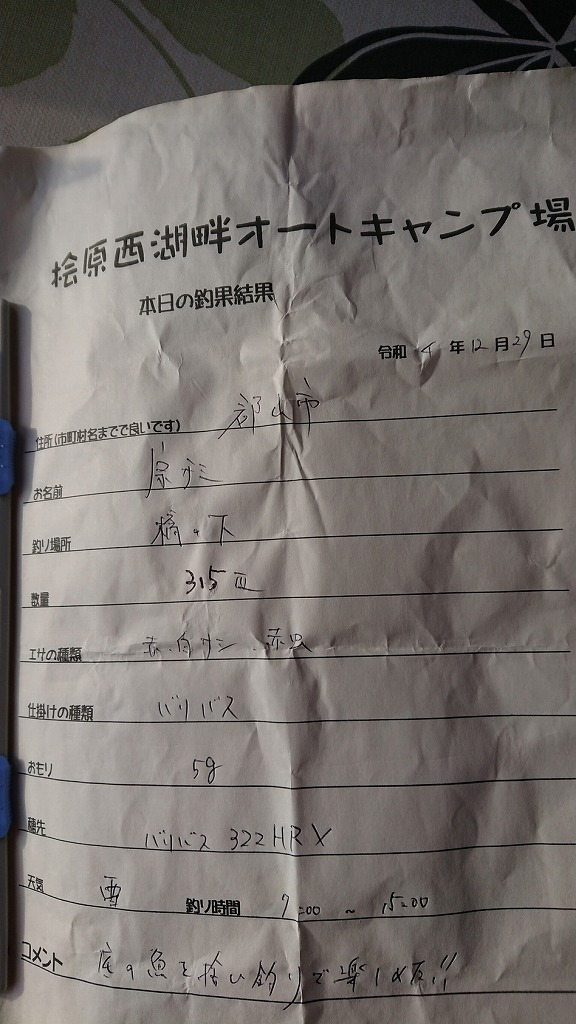 桧原西湖畔オートキャンプ場
本日の釣果結果
令和 4 年 12 月 29 日
住所(市町村名までで良いです) 郡山市
お名前
釣り場所 橋の下
数量 315匹
エサの種類 赤、白サシ、赤虫
仕掛けの種類 バリバス
おもり 5g
穂先 バリバス 322HRX
天気 雪 釣り時間 7:00 ~ 15:00
コメント 底の魚を拾い釣りで楽しめた!!